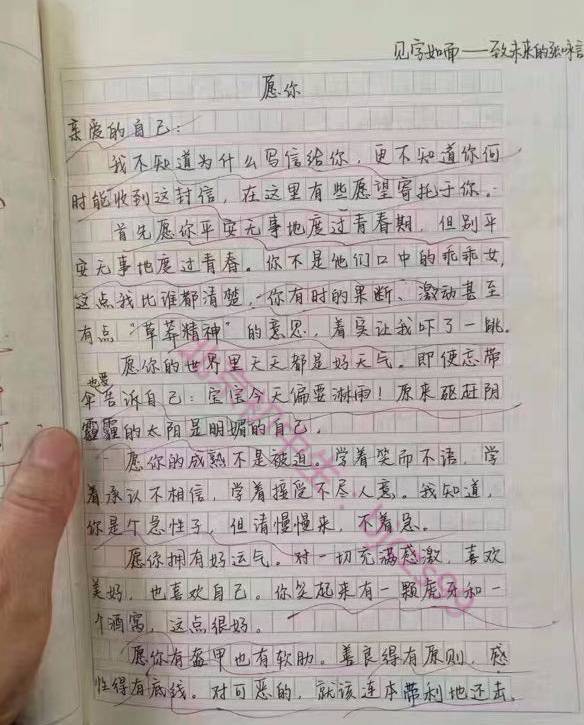 见字如面——致未来的张咏言
愿你
亲爱的自己：
我不知道为什么写信给你，更不知道你何
时能收到这封信，在这里有些愿望寄托于你。
首先愿你平安无事地度过青春期，但别平
安无事地度过青春。你不是他们口中的乖乖女，
这点我比谁都清楚，你有时的果断、激动甚至
有点“草莽精神”的意思，着实让我吓了一跳。
愿你的世界里天天都是好天气。即使忘带
伞也要告诉自己：宝宝今天偏要淋雨！原来驱赶阴
霾的太阳是明媚的自己。
愿你的成熟不是被迫。学着笑而不语，学
着承认不相信，学着接受不尽人意。我知道，
你是个急性子，但请慢慢来，不着急。
愿你拥有好运气。对一切充满感激，喜欢
美好，也喜欢自己。你笑起来有一颗虎牙和一
个酒窝，这点很好。
愿你有盔甲也有软肋。善良得有原则，感
性得有底线。对可恶的，就该连本带利地还击。